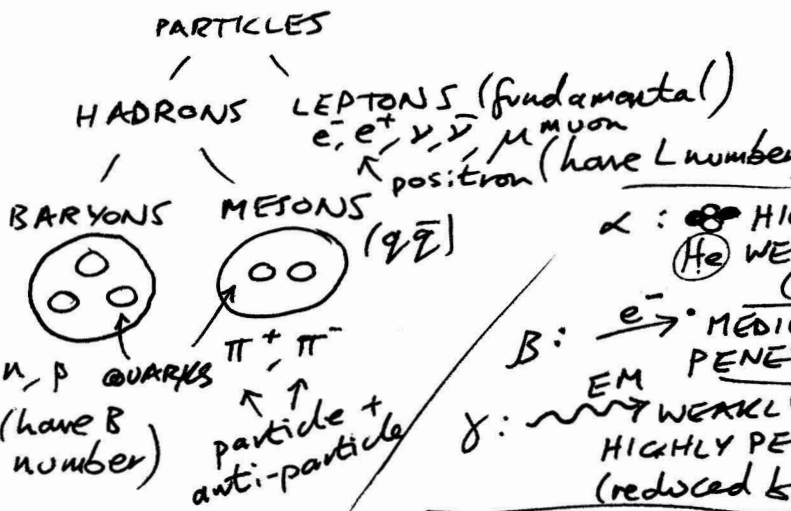 PARTICLES
HADRONS LEPTONS (fundamental)
e⁻, e⁺, ν, ν̄, μ muon
positron (have L number
BARYONS MESONS
(qq̄)
n, p QUARKS π⁺, π⁻
(have B number)
particle +
anti-particle
α :
He
β : e⁻ MEDI
PENE
γ : EM WEAKLY
HIGHLY PE
(reduced